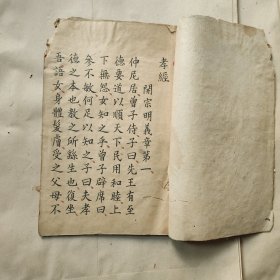 孝經
開宗明義章第一
仲尼居曾子侍子曰先王有至
德要道以順天下民用和睦上
下無怨女知之乎曾子辟席曰
參不敏何足以知之子曰夫孝
德之本也教之所繇生也復坐
吾語女身體髮膚受之父母不